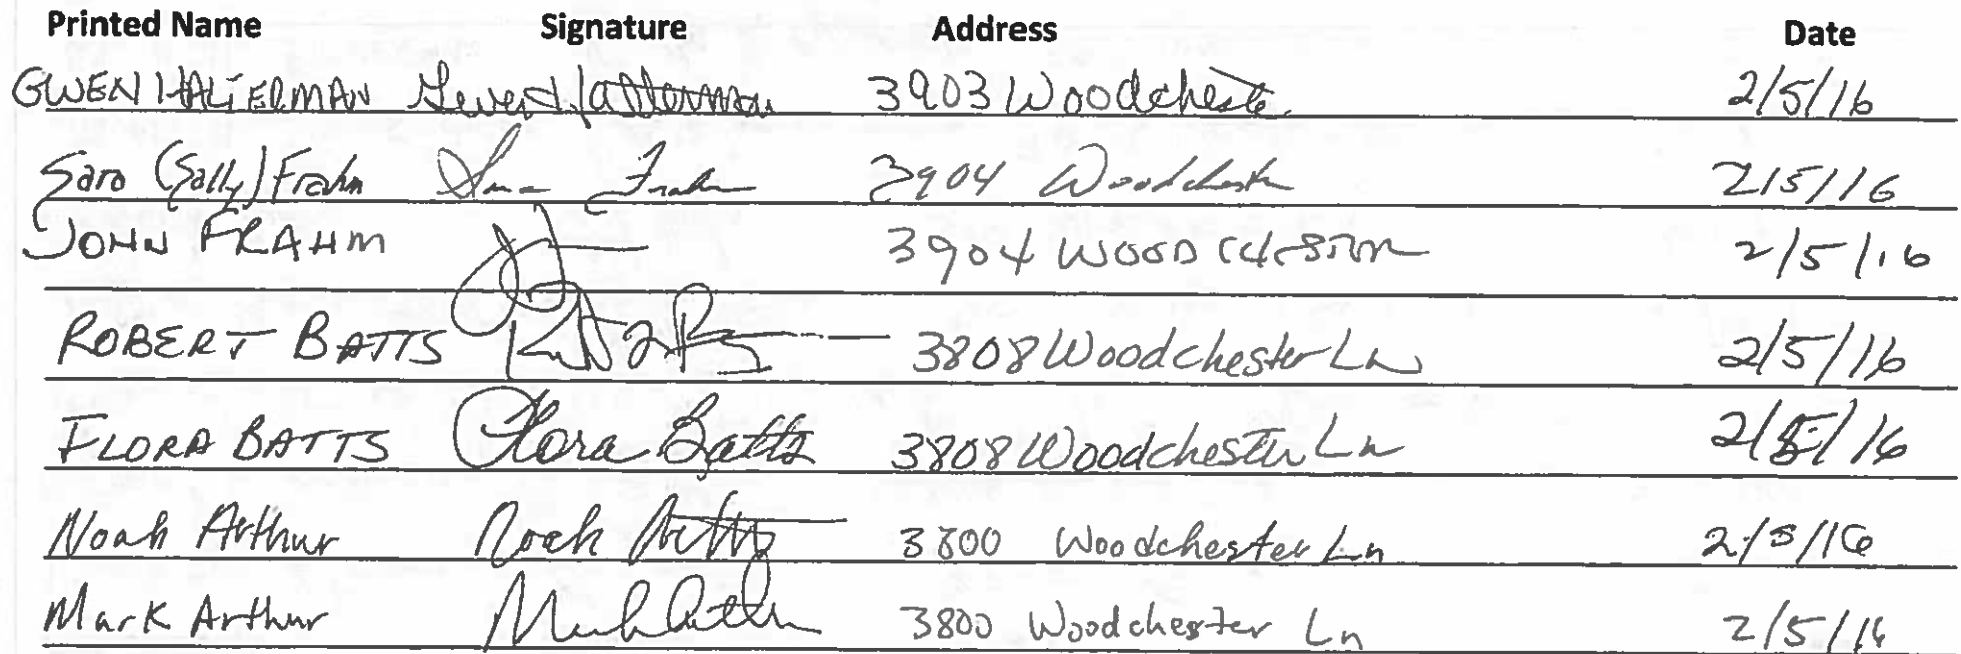 Printed Name Signature Address Date
GWEN HALTERMAN Gwen Halterman 3903 Woodcheste 2/5/16
Sara (Sally) Frahm Sara Frahm 3904 Woodchester 2/5/16
JOHN FRAHM 3904 WOODCHESTER 2/5/16
ROBERT BATTS 3808 Woodchester Ln 2/5/16
FLORA BATTS Flora Batts 3808 Woodchester Ln 2/5/16
Noah Arthur Noah Arthur 3800 Woodchester Ln 2/5/16
Mark Arthur Mark Arthur 3800 Woodchester Ln 2/5/16